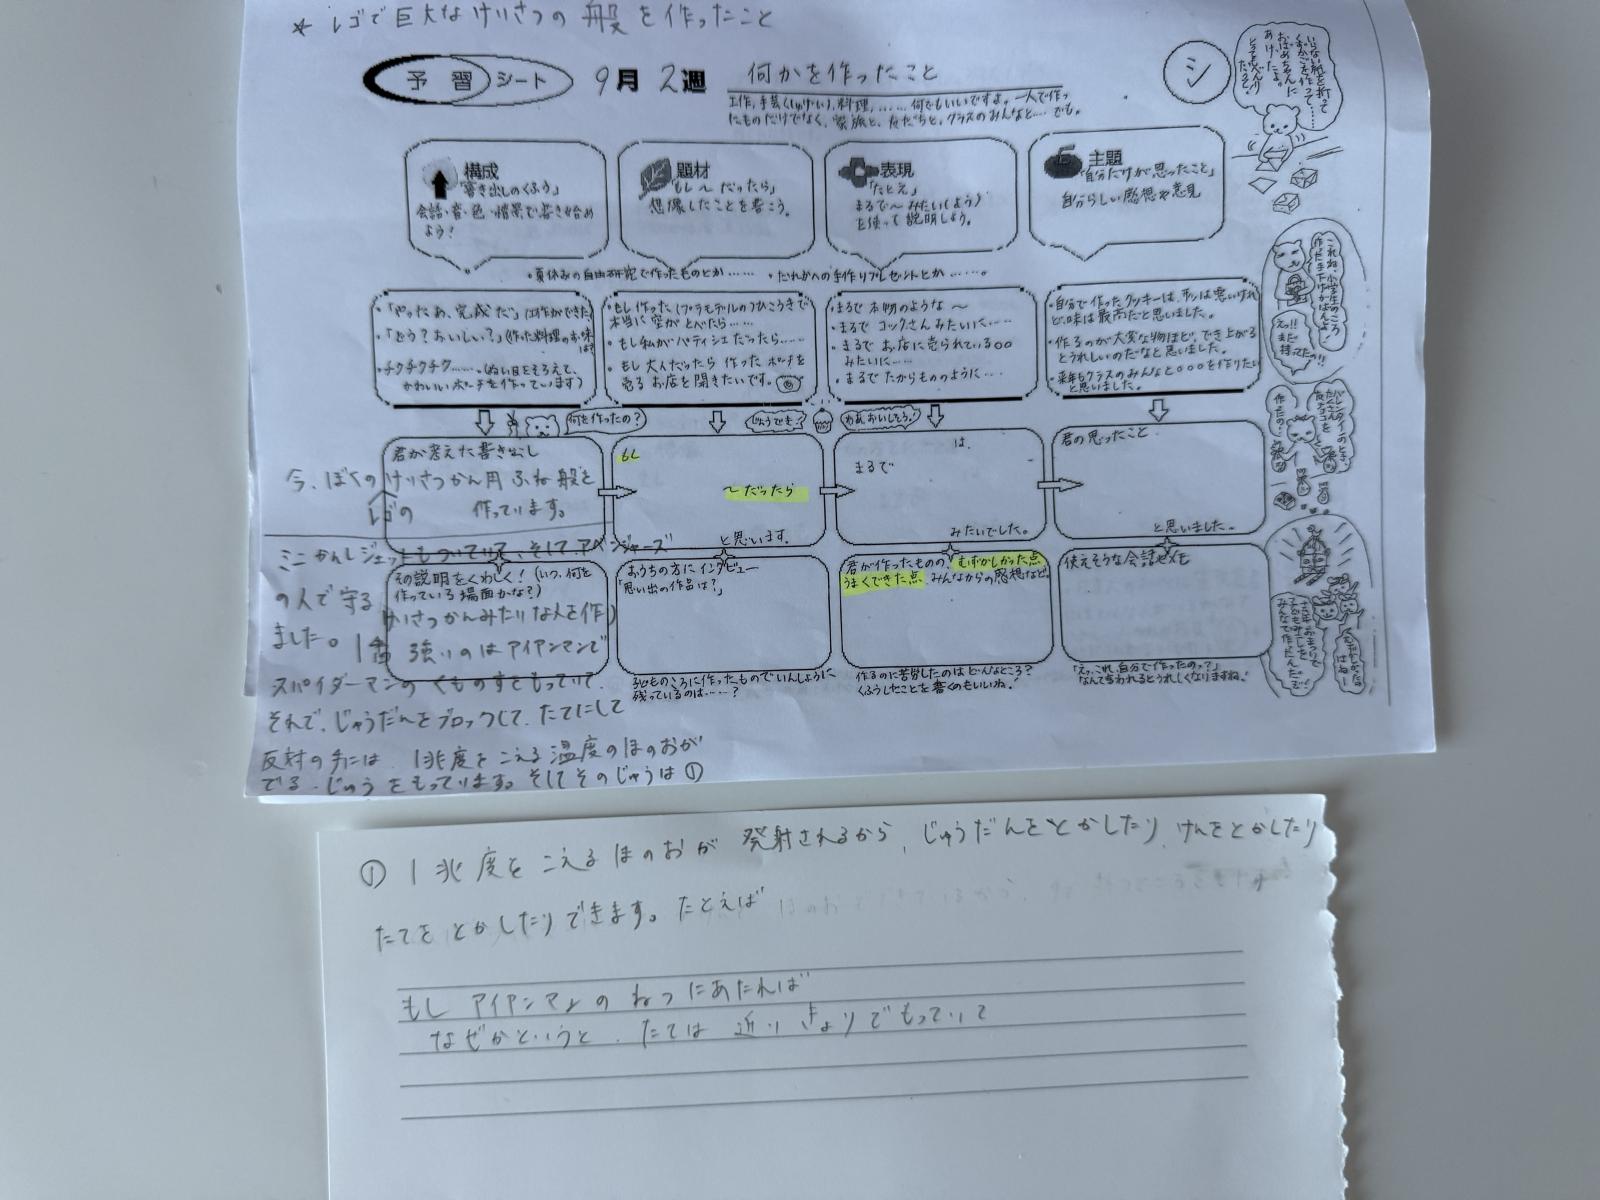 * レゴで巨大なけいさつの般を作ったこと
予習シート 9月2週 何かを作ったこと
工作、手芸(しゅげい)、料理、……何でもいいですよ。一人で作っ
たものだけでなく、家族と、友だちと、クラスのみんなと……でも。
シ
いらない紙を折って
くずかごを作って……
おばあちゃんに
あげたよ。
構成
「書き出しのくふう」
会話・音・色・情景で書き始め
よう!
題材
「もし〜だったら」
想像したことを書こう。
表現
「たとえ」
まるで〜みたい(よう)
を使って説明しよう。
主題
「自分だけが思ったこと」
自分らしい感想や意見
・夏休みの自由研究で作ったものとか…… ・だれかへの手作りプレゼントとか……。
・「やったあ、完成だ」(工作ができた)
・「どう?おいしい?」(作った料理のお味は?)
・チクチクチク……。(ぬい目をそろえて、
かわいいポーチを作っています)
・もし作ったプラモデルのひこうきで
本当に空がとべたら……
・もし私がパティシエだったら……
・もし大人だったら作ったポーチを
売るお店を開きたいです。
・まるで本物のような〜
・まるでコックさんみたいに……
・まるでお店に売られている○○
みたいに……
・まるでたからもののように……
・自分で作ったクッキーは、形は悪いけれ
ど、味は最高だと思いました。
・作るのが大変な物ほど、でき上がる
とうれしいのだなと思いました。
・来年もクラスのみんなと○○○を作りたい
と思いました。
何を作ったの?
じょうでき?
わあおいしそう!
君が考えた書き出し
今、ぼくのけいさつかん用ふね般を
レゴの 作っています。
もし
〜だったら
と思います。
は、
まるで
みたいでした。
君の思ったこと
と思いました。
ミニかんしジェットもついていて、そして、アベンジャーズ
その説明をくわしく!(いつ、何を
作っている場面かな?)
の人で守るけいさつかんみたいな人を作り
ました。1番強いのはアイアンマンで
スパイダーマンのくものすをもっていて、
それで、じゅうだんをブロックして、たてにして
反対の手には、1兆度をこえる温度のほのおが
でる、じゅうをもっています。そしてそのじゅうは①
おうちの方にインタビュー
「思い出の作品は?」
子どものころに作ったものでいんしょうに
残っているのは……?
君が作ったもののむずかしかった点
うまくできた点、みんなからの感想など。
作るのに苦労したのはどんなところ?
くふうしたことを書くのもいいね。
使えそうな会話メモ
「えっ、これ、自分で作ったのっ?」
なんて言われるとうれしくなりますね。
① 1兆度をこえるほのおが発射されるから、じゅうだんをとかしたり、けんをとかしたり
たてをとかしたりできます。たとえば
もしアイアンマンのねつにあたれば
なぜかというと、たては近いきょりでもっていて